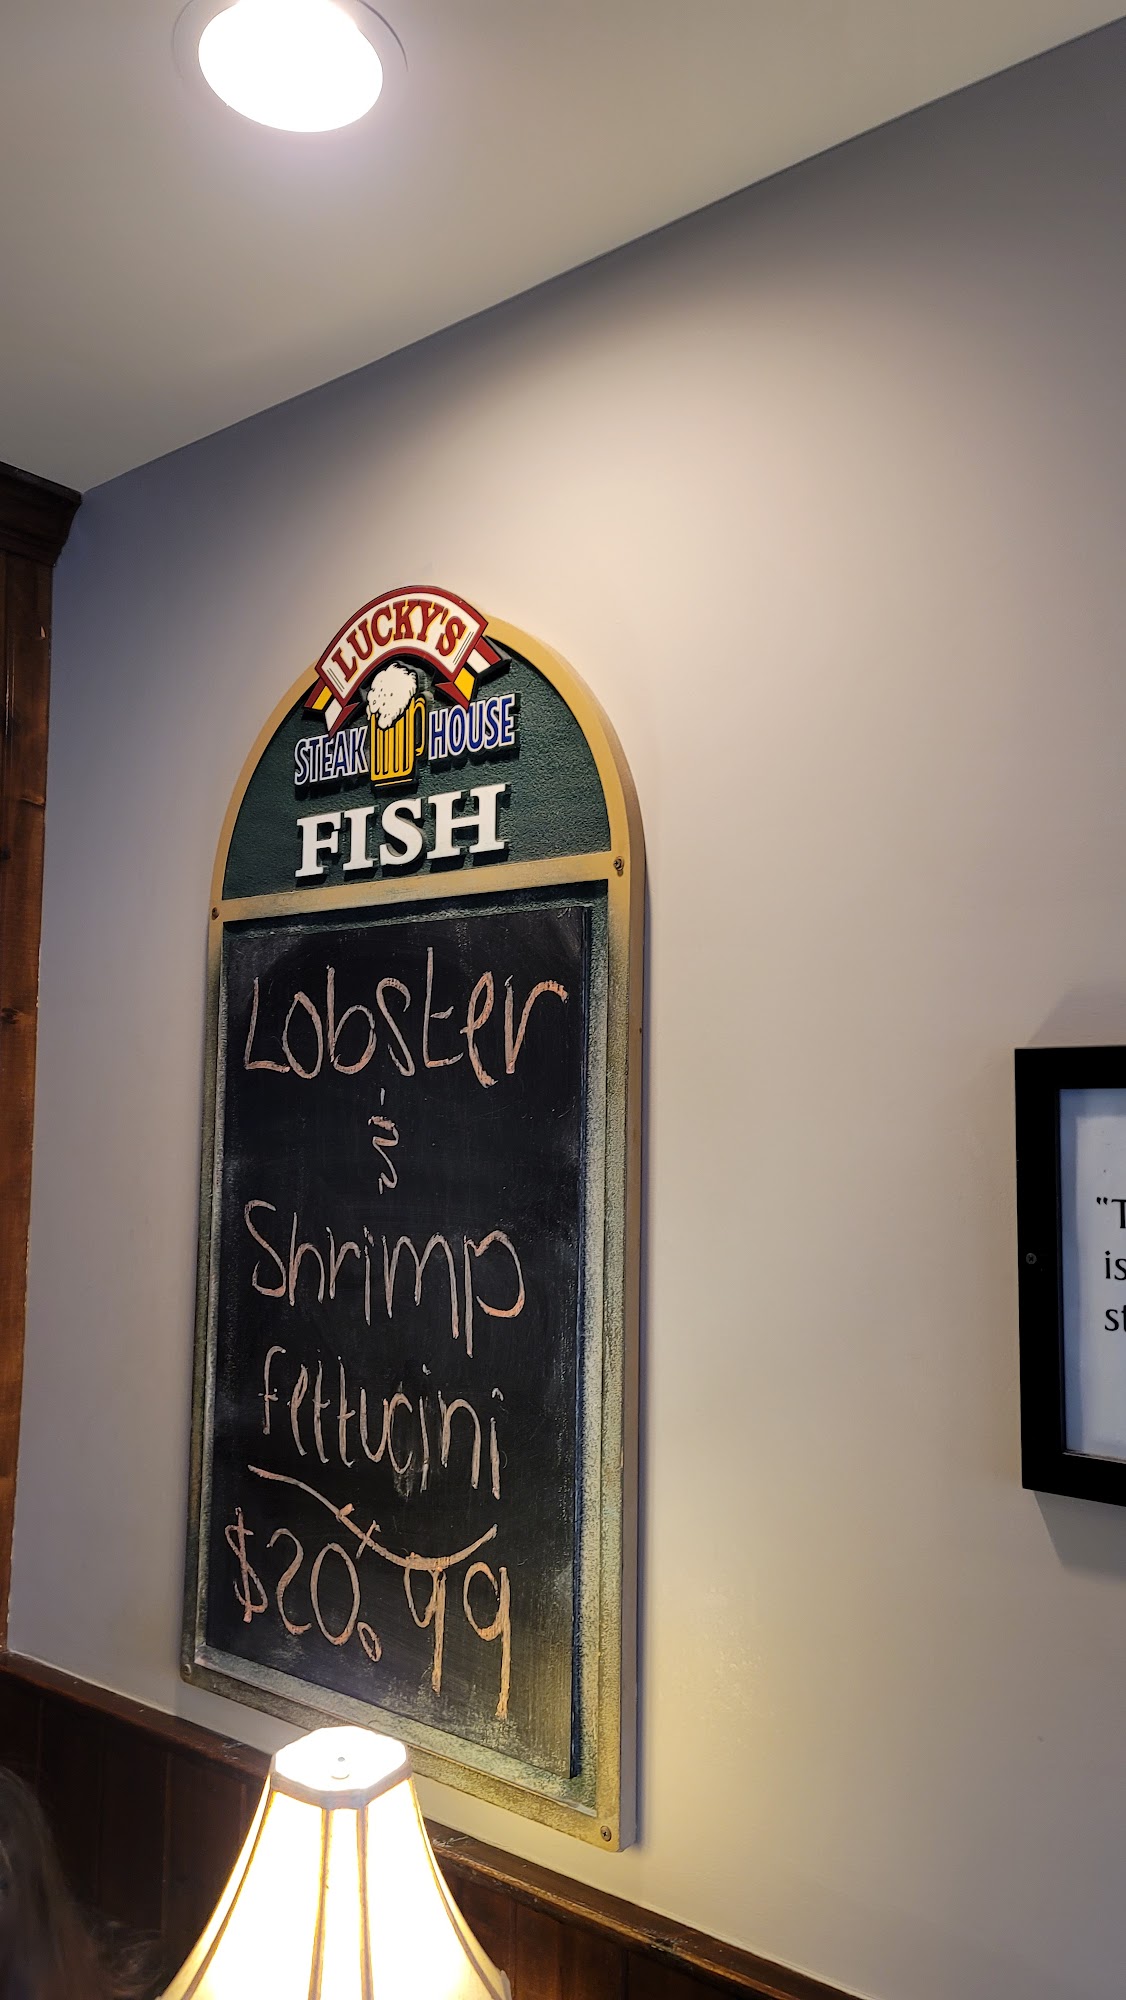 LUCKY'S
STEAK HOUSE
FISH
Lobster
&
Shrimp
fettucini
$20.99
"T
is
st